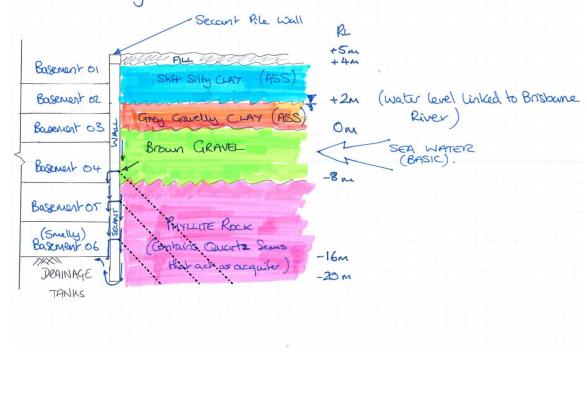 Secant Pile Wall
RL
+5m
+4m
FILL
Basement 01
Stiff Silty CLAY (ASS)
Basement 02
+2m
(Water level linked to Brisbane
River)
Grey Gravelly CLAY (ASS)
Basement 03
0m
WALL
Brown GRAVEL
SEA WATER
(BASIC).
Basement 04
-8m
Basement 05
SECANT
PHYLLITE ROCK
(Smelly)
Basement 06
(Contains Quartz Seams
that act as acquifer)
-16m
DRAINAGE
TANKS
-20m